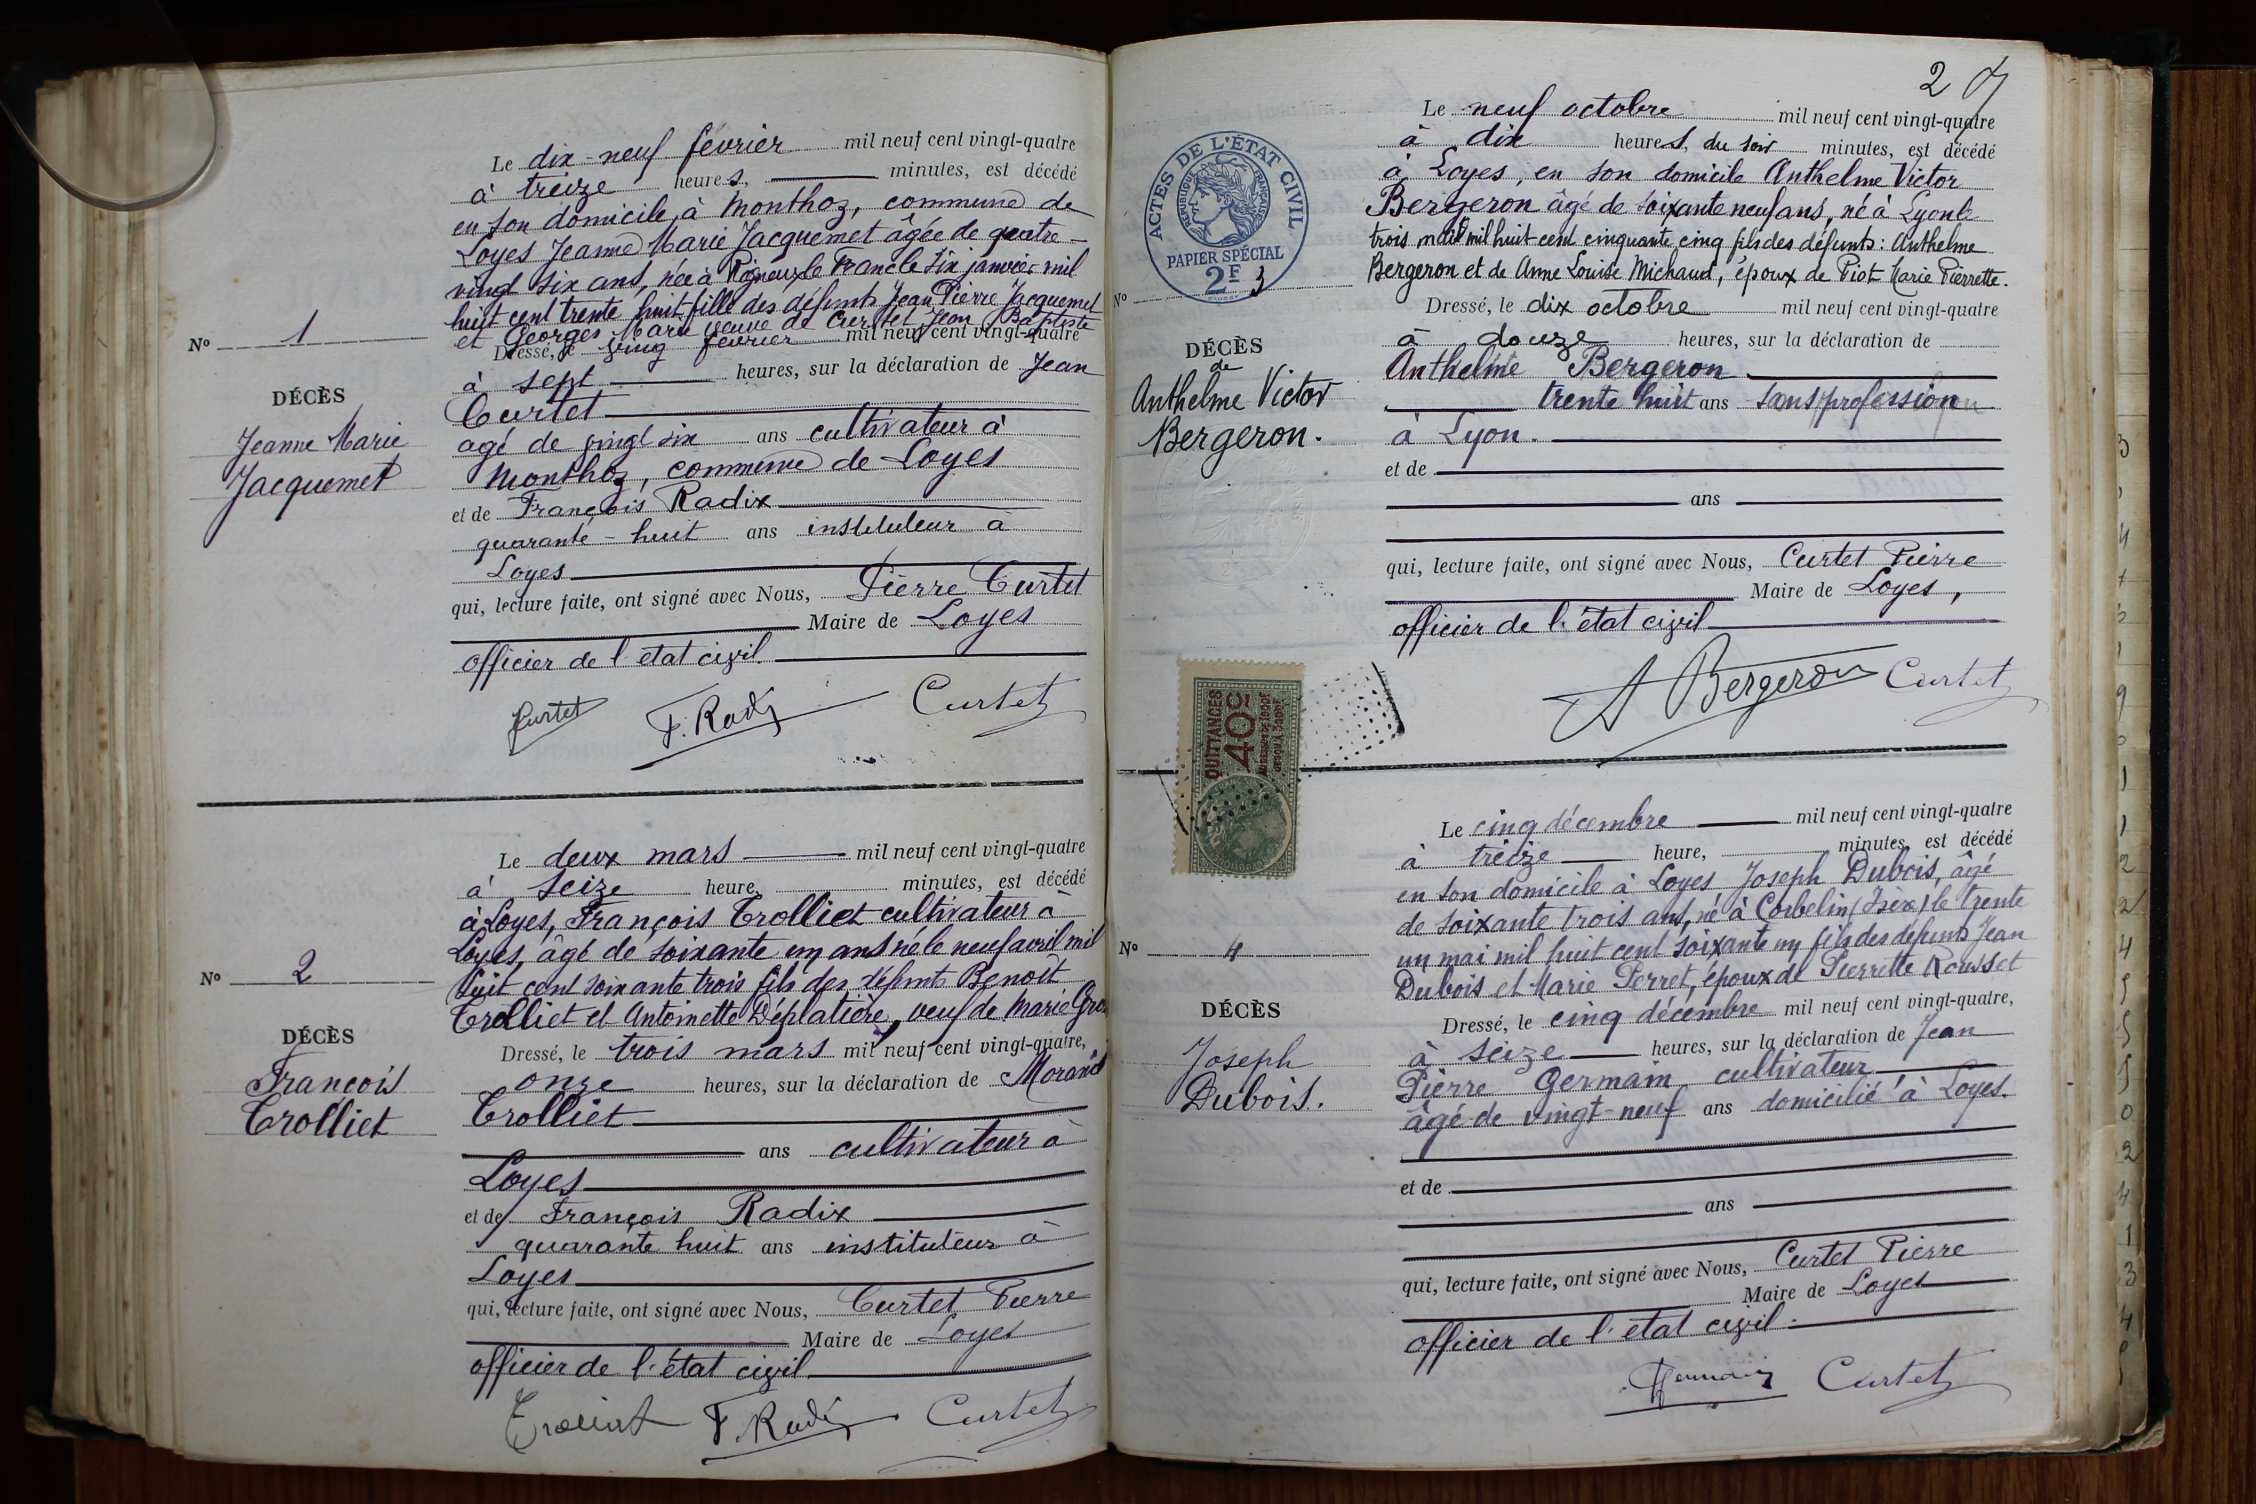 Le dix-neuf février mil neuf cent vingt-quatre
à treize heures, minutes, est décédé
en son domicile, à Monthoz, commune de
Loyes Jeanne Marie Jacquemet âgée de quatre-
vingt six ans, née à Rigneux le Franc le six janvier mil
huit cent trente huit fille des défunts Jean Pierre Jacquemet
et Georges Marie veuve de Curtet Jean Baptiste
Dressé, le ving février mil neuf cent vingt-quatre
à sept heures, sur la déclaration de Jean
Curtet
agé de vingt six ans cultivateur à
Monthoz, commune de Loyes
et de François Radix
quarante-huit ans instituteur à
Loyes
qui, lecture faite, ont signé avec Nous, Pierre Curtet
Maire de Loyes
officier de l'état civil.
Curtet F. Radix Curtet
No 1
DÉCÈS
Jeanne Marie
Jacquemet
Le deux mars mil neuf cent vingt-quatre
à seize heure, minutes, est décédé
à Loyes, François Trolliet cultivateur à
Loyes, âgé de soixante un ans né le neuf avril mil
huit cent soixante trois fils des défunts Benoît
Trolliet et Antoinette Déplatière, veuf de Marie
Dressé, le trois mars mil neuf cent vingt-quatre,
onze heures, sur la déclaration de
Trolliet
ans cultivateur à
Loyes
et de François Radix
quarante huit ans instituteur à
Loyes
qui, lecture faite, ont signé avec Nous, Curtet Pierre
Maire de Loyes
officier de l'état civil
Trolliet F. Radix Curtet
No 2
DÉCÈS
François
Trolliet
2
Le neuf octobre mil neuf cent vingt-quatre
à dix heures, du soir minutes, est décédé
à Loyes, en son domicile Anthelme Victor
Bergeron âgé de soixante neuf ans, né à Lyon le
trois mai mil huit cent cinquante cinq fils des défunts: Anthelme
Bergeron et de Anne Louise Michaud, époux de Piot Marie Pierrette.
Dressé, le dix octobre mil neuf cent vingt-quatre
à douze heures, sur la déclaration de
Anthelme Bergeron
trente huit ans sans profession
à Lyon.
et de
ans
qui, lecture faite, ont signé avec Nous, Curtet Pierre
Maire de Loyes,
officier de l'état civil
A Bergeron Curtet
ACTES DE L'ÉTAT CIVIL
RÉPUBLIQUE FRANÇAISE
PAPIER SPÉCIAL
2F
No 3
DÉCÈS
de
Anthelme Victor
Bergeron.
QUITTANCES
40c
Le cinq décembre mil neuf cent vingt-quatre
à treize heure, minutes, est décédé
en son domicile à Loyes Joseph Dubois, âgé
de soixante trois ans, né à Corbelin (Isère) le trente
un mai mil huit cent soixante un fils des défunts Jean
Dubois et Marie Perret, époux de Pierrette Rousset
Dressé, le cinq décembre mil neuf cent vingt-quatre,
à seize heures, sur la déclaration de Jean
Pierre Germain cultivateur
âgé de vingt-neuf ans domicilié à Loyes.
et de
ans
qui, lecture faite, ont signé avec Nous, Curtet Pierre
Maire de Loyes
officier de l'état civil.
Germain Curtet
No 4
DÉCÈS
Joseph
Dubois.